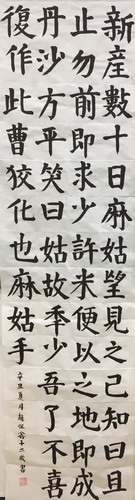 新產數十日麻姑望見之已知曰且
止勿前即求少許米便以之地即成
丹沙方平笑曰姑故秊少吾了不喜
復作此曹狡化也麻姑手
辛丑夏月趙 十二歲書